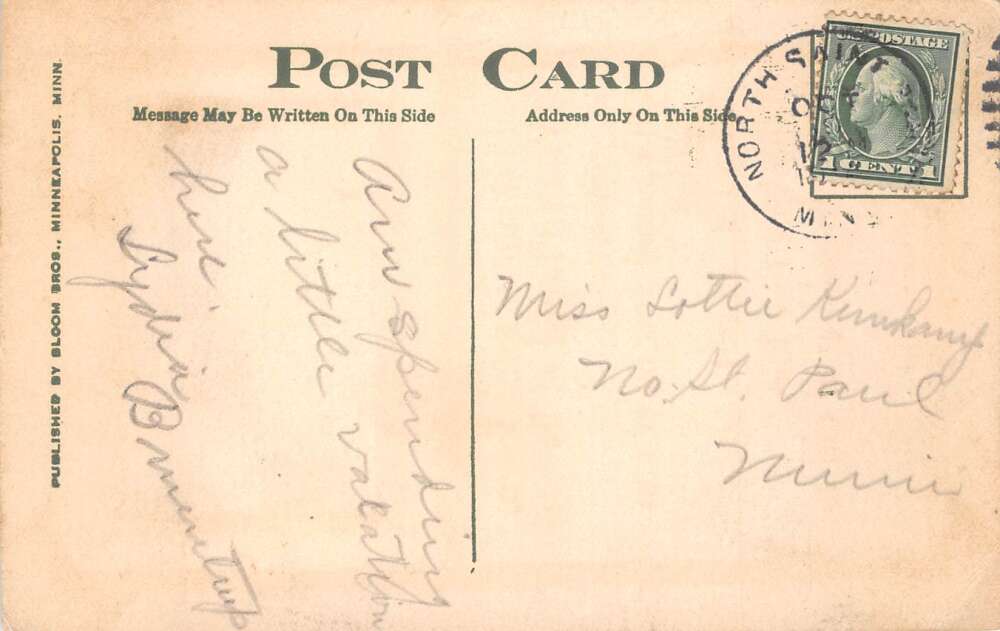 POST CARD
Message May Be Written On This Side
Address Only On This Side
PUBLISHED BY BLOOM BROS., MINNEAPOLIS, MINN.
Am spending
a little vacation
here.
Lydia
POSTAGE
1 CENT 1
NORTH SAINT
12
MINN
Miss Lottie
No. St. Paul
Minn